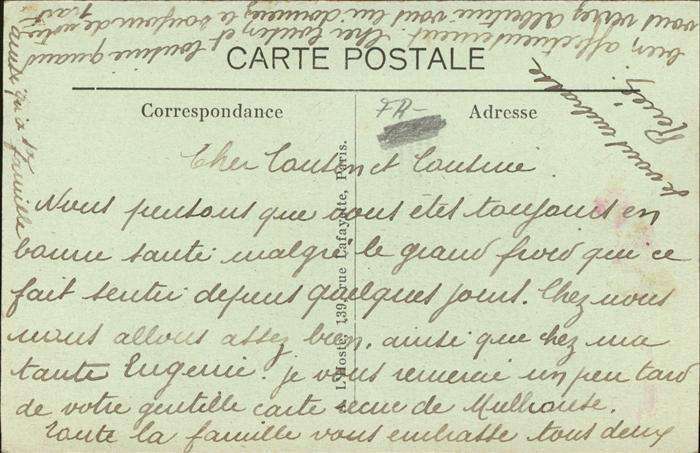 CARTE POSTALE
Correspondance
Adresse
L'Hoste, 139, rue Lafayette, Paris.
Cher Cousin et Cousine
Nous pensons que vous êtes toujours en
bonne santé malgré le grand froid qui ce
fait sentir depuis quelques jours. Chez nous
nous allons assez bien, ainsi que chez ma
tante Eugenie. je vous remercie un peu tard
de votre gentille carte recue de Mulhouse.
Toute la famille vous embrasse tous deux
bien affectueusement. Cher Cousin et Cousine quand
vous verrez Albertine vous lui donnerez le bonjour de notre part
ainsi qu'à sa famille
je vous embrasse
Renée